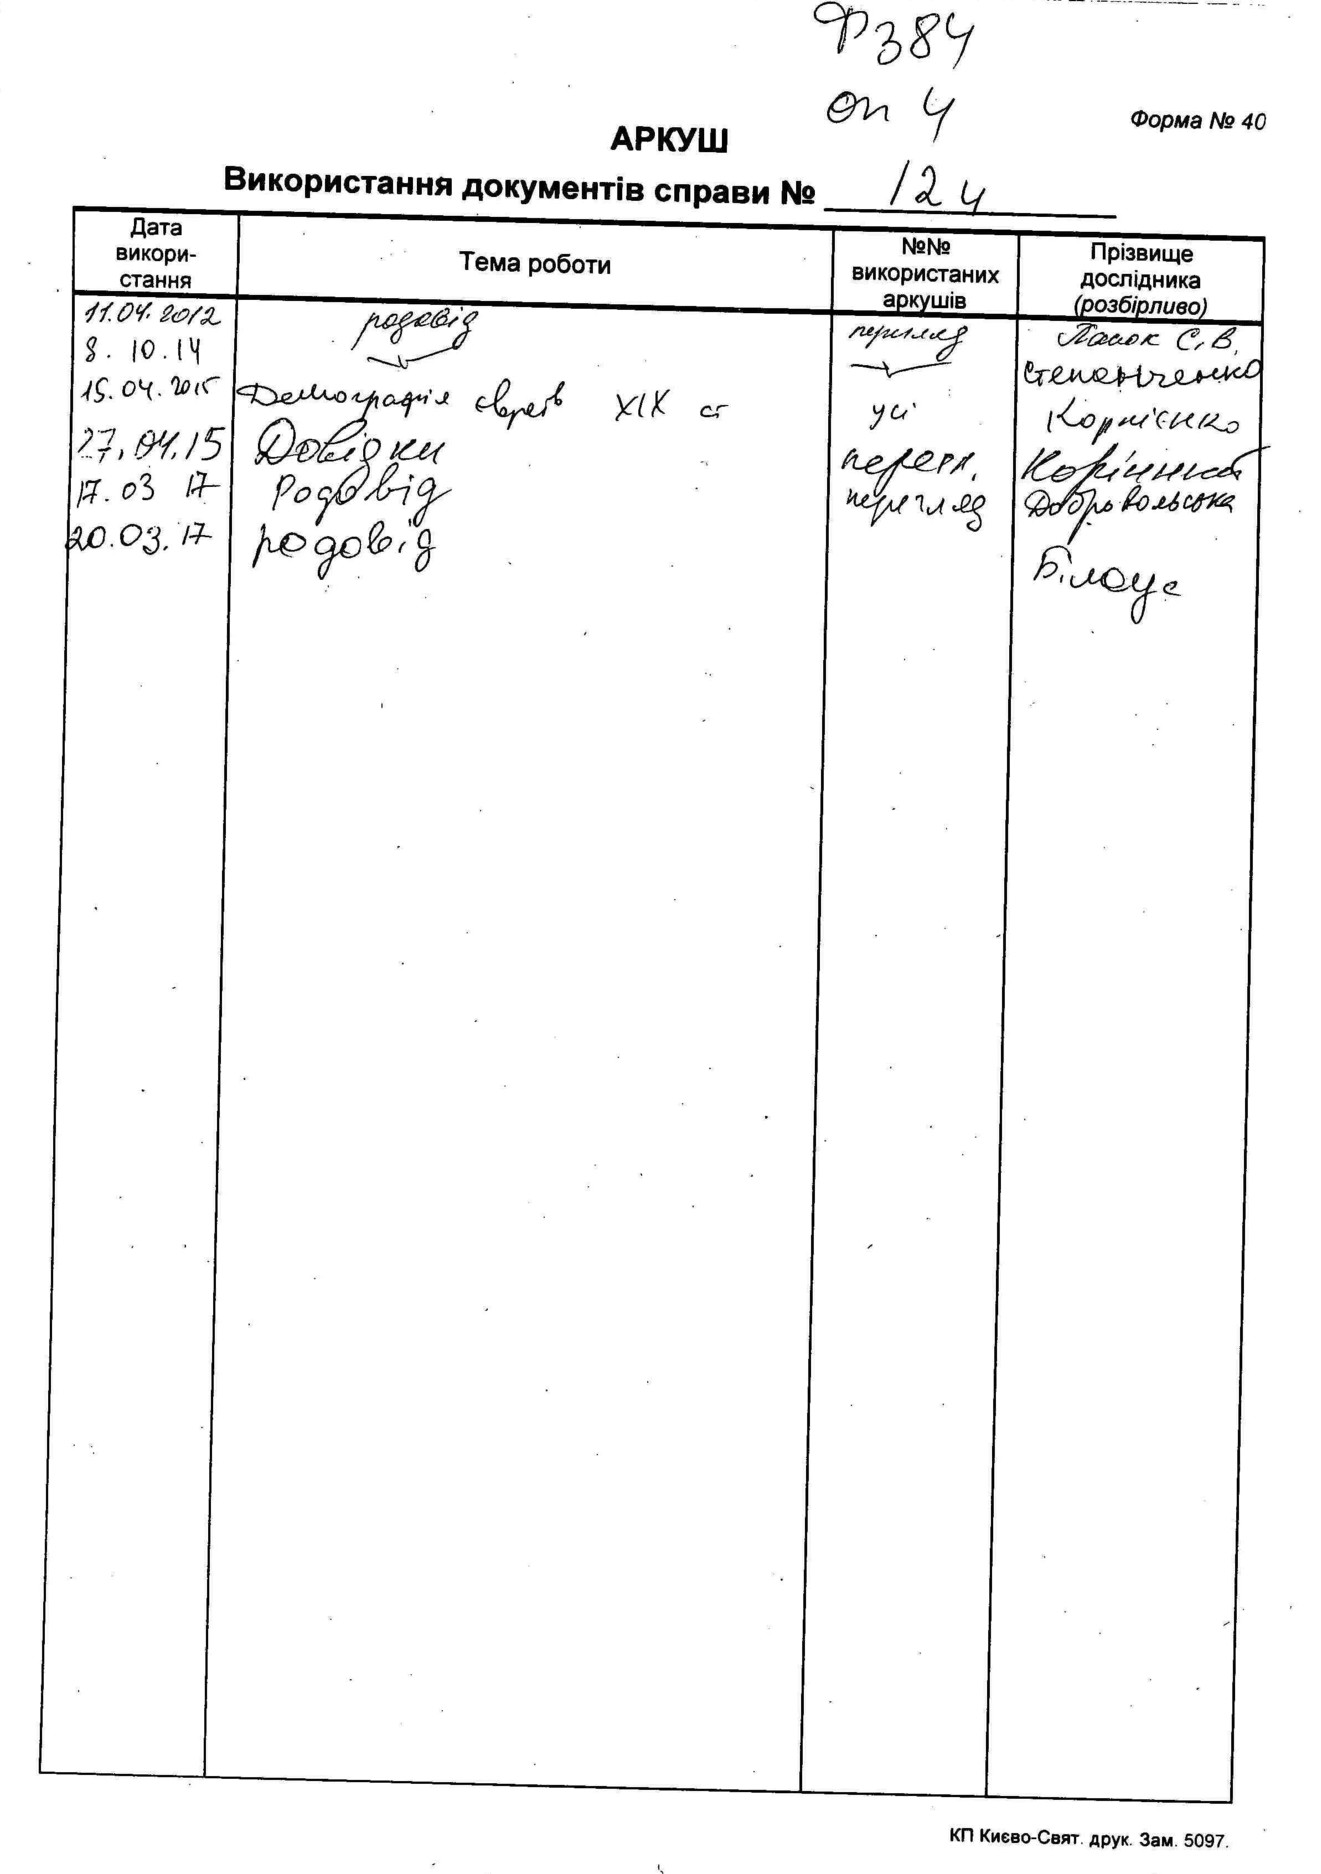 Ф 384
оп 4
Форма № 40
АРКУШ
Використання документів справи № 124
Дата використання Тема роботи №№ використаних аркушів Прізвище дослідника (розбірливо)
11.04.2012 родовід перегляд С.В.
8.10.14 Степаніченко
15.04.2015 Демографія євреїв ХІХ ст усі Корнієнко
27.04.15 Довідки перегл.
17.03 17 Родовід перегляд Добровольська
20.03.17 родовід Білоус
КП Києво-Свят. друк. Зам. 5097.